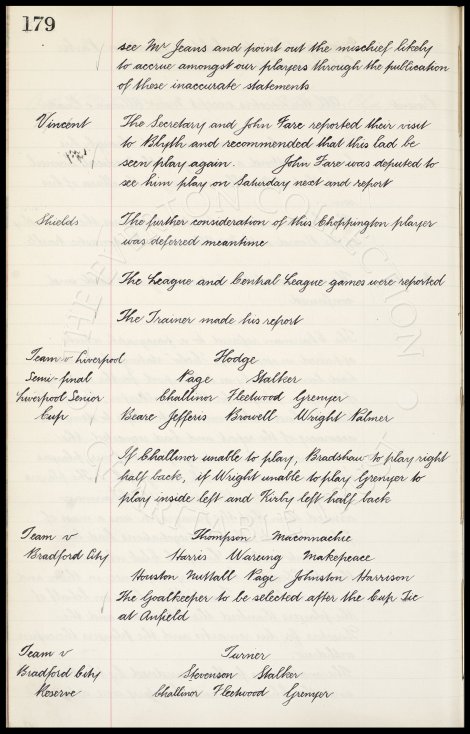 179
see Mr Jeans and point out the mischief likely
to accrue amongst our players through the publication
of these inaccurate statements
Vincent The Secretary and John Fare reported their visit
to Blyth and recommended that this lad be
seen play again. John Fare was deputed to
see him play on Saturday next and report
Shields The further consideration of this Choppington player
was deferred meantime
The League and Central League games were reported
The Trainer made his report
Team v Liverpool Hodge
Semi-final Page Stalker
Liverpool Senior Challinor Fleetwood Grenyer
Cup Beare Jefferis Browell Wright Palmer
If Challinor unable to play, Bradshaw to play right
half back, if Wright unable to play Grenyer to
play inside left and Kirby left half back
Team v Thompson Maconnachie
Bradford City Harris Wareing Makepeace
Houston Nuttall Page Johnston Harrison
The Goalkeeper to be selected after the Cup Tie
at Anfield
Team v Turner
Bradford City Stevenson Stalker
Reserve Challinor Fleetwood Grenyer
THE EVERTON COLLECTION